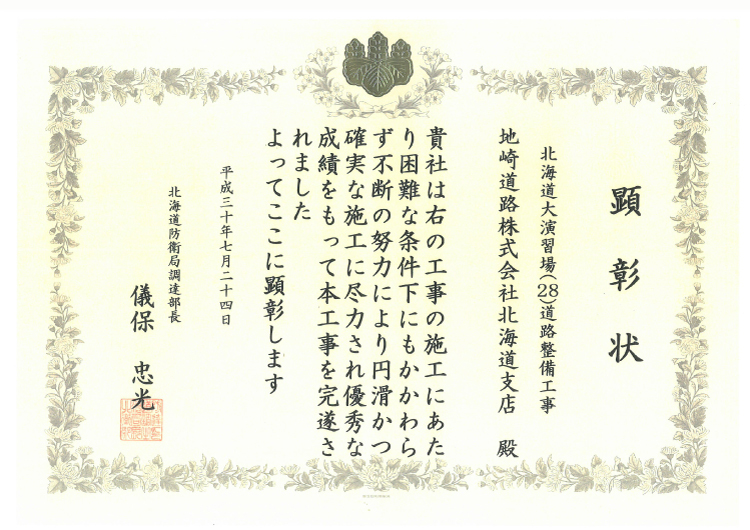 顕彰状
北海道大演習場(28)道路整備工事
地崎道路株式会社北海道支店 殿
貴社は右の工事の施工にあた
り困難な条件下にもかかわら
ず不断の努力により円滑かつ
確実な施工に尽力され優秀な
成績をもって本工事を完遂さ
れました
よってここに顕彰します
平成三十年七月二十四日
北海道防衛局調達部長
儀保 忠光